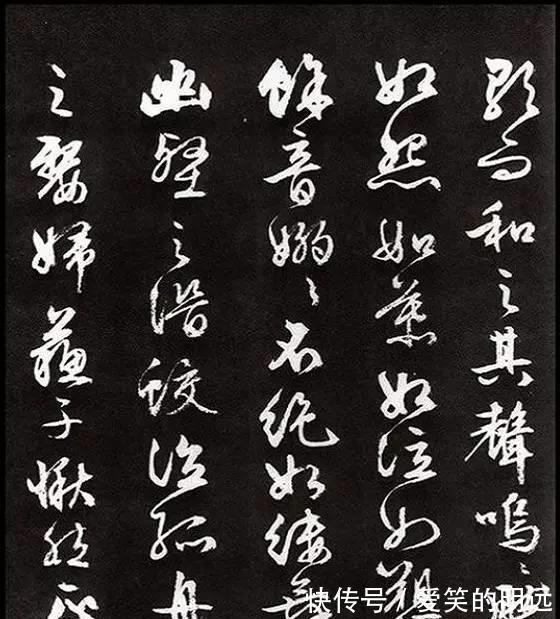 歌而和之其聲嗚〻然
如怨如慕如泣如訴
餘音嫋〻不絕如縷舞
幽壑之潛蛟泣孤舟
之嫠婦蘇子愀然正
快传号/爱笑的明远